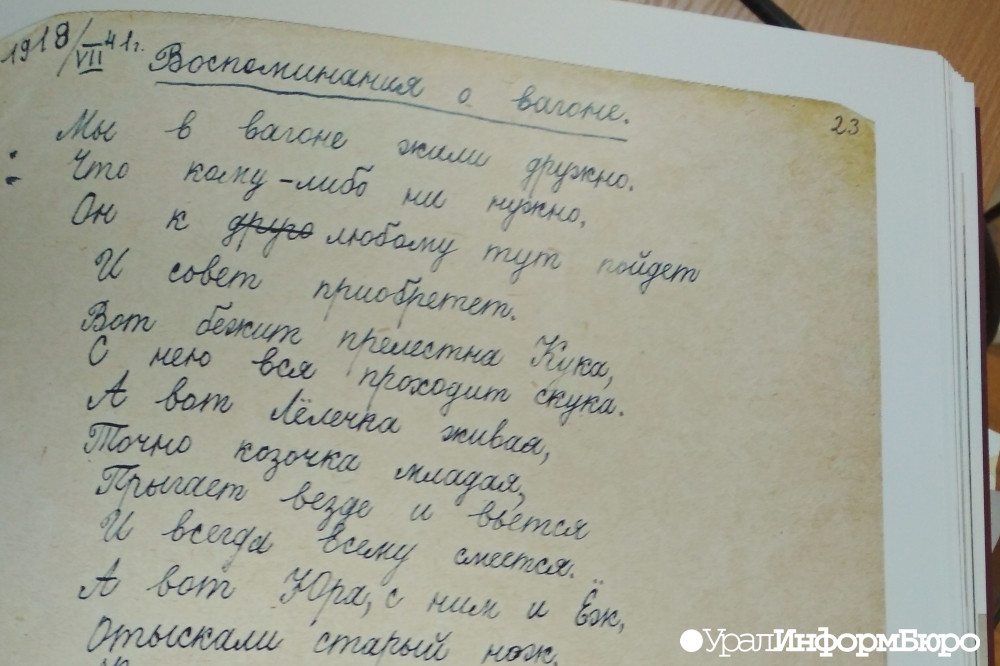 1918/VII 41г.
Воспоминания о вагоне.
23
Мы в вагоне жили дружно.
Что кому-либо ни нужно,
Он к друго любому тут пойдет
И совет приобретет.
Вот бежит прелестна Кука,
С нею вся проходит скука.
А вот Лёлечка живая,
Точно козочка младая,
Прыгает везде и вьется
И всегда всему смеется.
А вот Юра, с ним и Ёж,
Отыскали старый нож.
УралИнформБюро